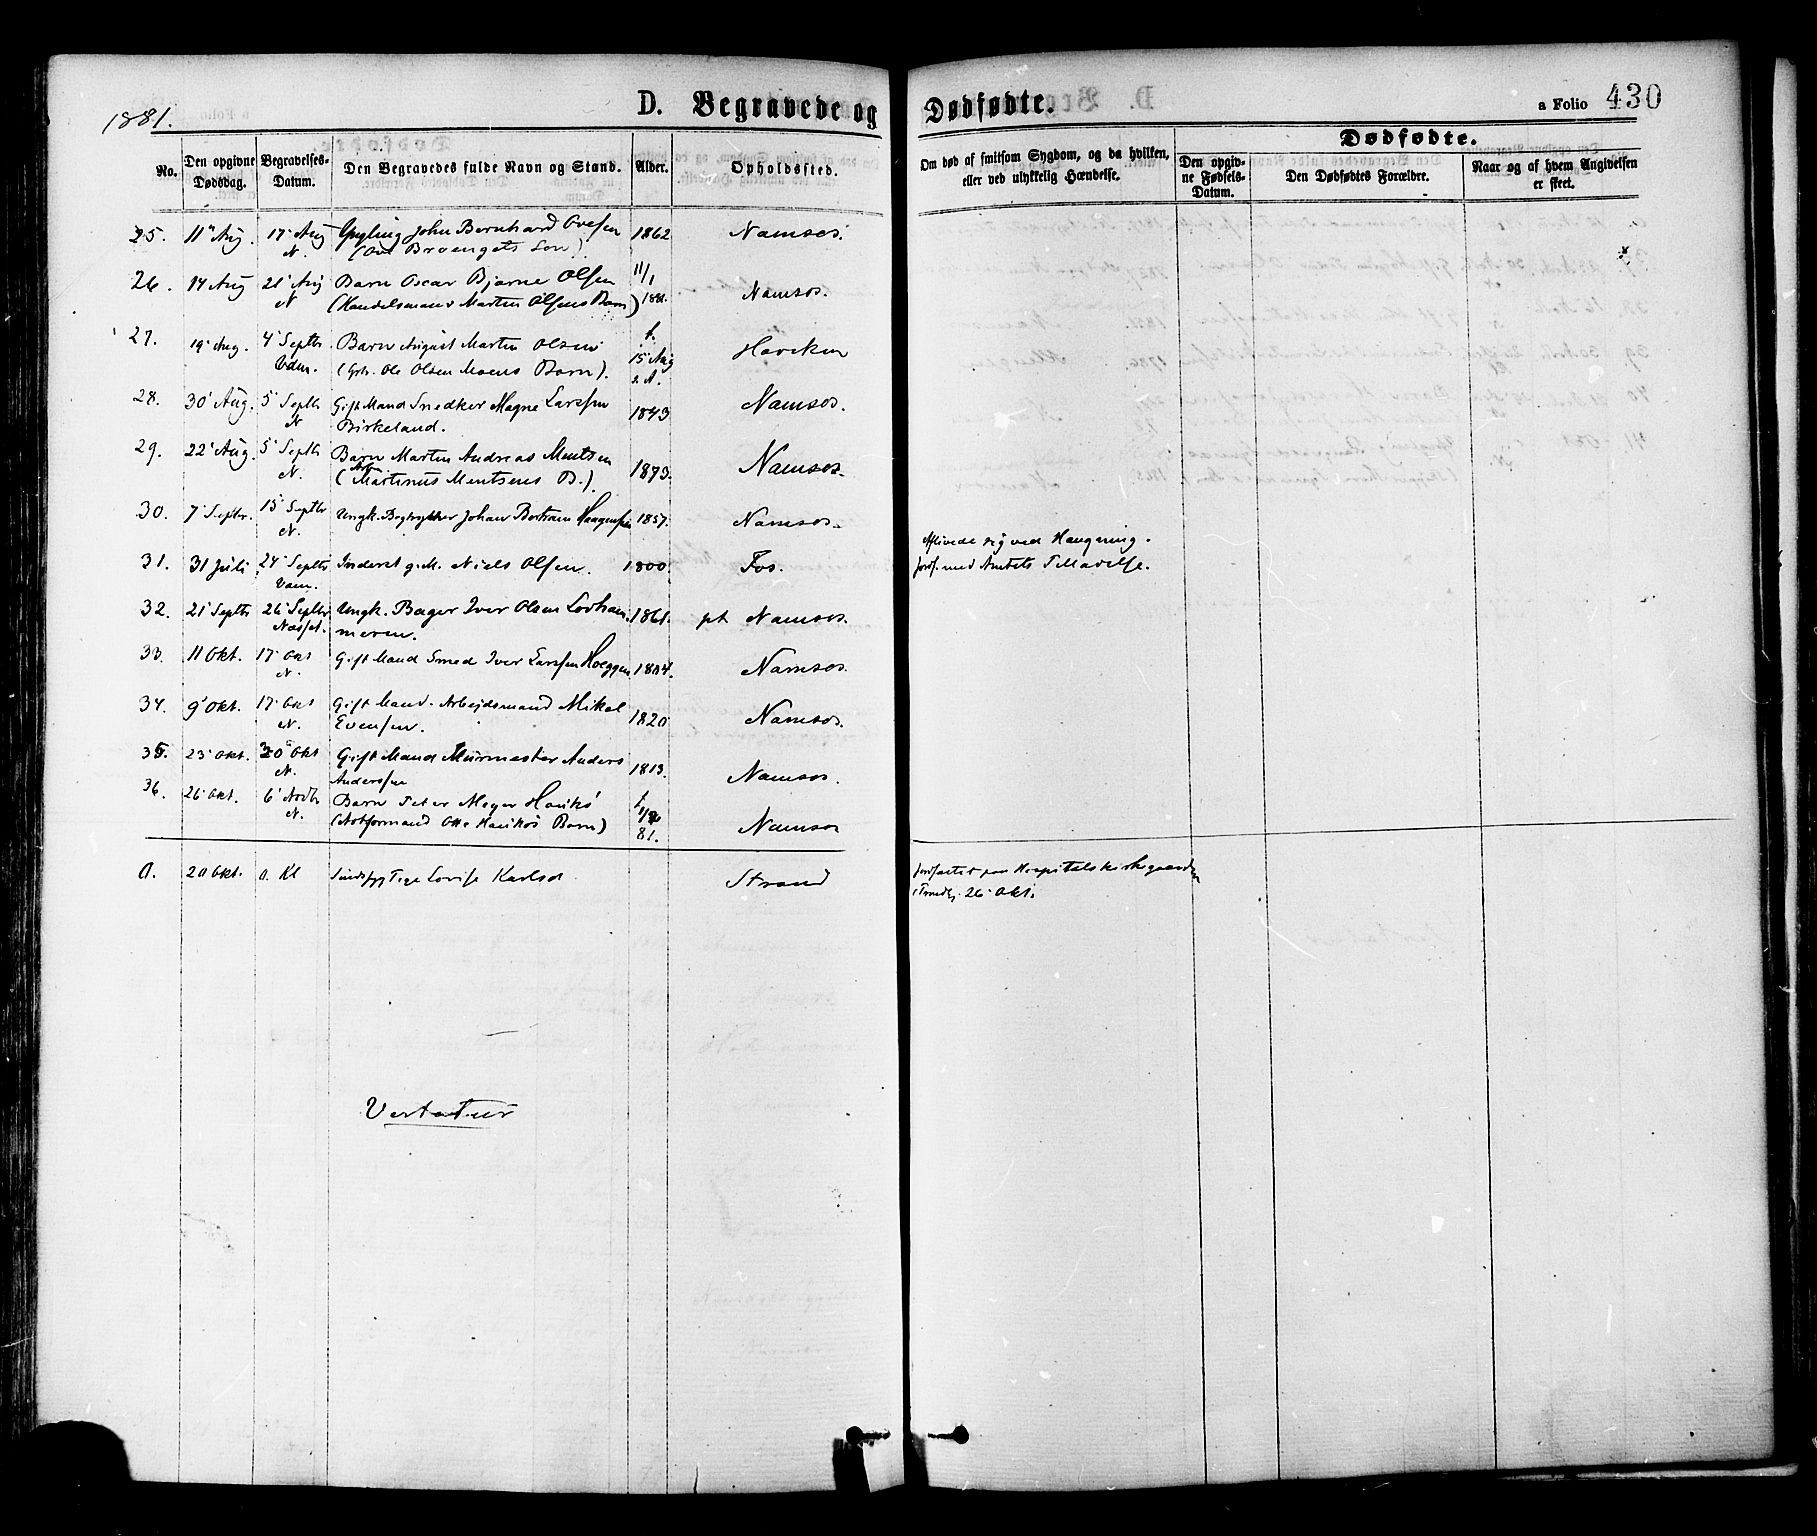 1881.
D. Begravede og Dødfødte.
a Folio 430
No.
Den opgivne Dødsdag.
Begravelses-Datum.
Den Begravedes fulde Navn og Stand.
Alder.
Opholdssted.
Om død af smitsom Sygdom, og da hvilken, eller ved ulykkelig Hændelse.
Dødfødte.
Den opgivne Fødsels-Datum.
Den Dødfødtes Forældre.
Naar og af hvem Angivelsen er skeet.
25. 11' Aug. 17' Aug N. Yngling John Bernhard Ovesen 1862 Namsos.
(Ove Braengets Søn).
26. 14 Aug 21' Aug N Barn Oscar Bjarne Olsen 11/1 1881. Namsos.
(Handelsmand Martin Olsens Barn)
27. 19' Aug. 4' Septbr Vdm. Barn August Martin Olsen f. 15 Aug s. A. Haviken
(Grb. Ole Olsen Moens Barn).
28. 30' Aug. 5' Septbr N Gift Mand Snedker Magne Larssen 1843 Namsos.
Birkeland.
29. 22' Aug. 5' Septbr N. Barn Martin Andreas Mentsen 1873. Namsos.
(Arb Martinus Mentsens B.).
30. 7' Septbr. 15' Septbr N. Ungk. Bogtrykker Johan Bertram Haagensen 1857. Namsos.
31. 31 Juli 24' Septbr Vdm. Inderst g.M. Niels Olsen. 1800. Fos. Aflivede sig ved Hængning.
jordf. med Amtets Tilladelse.
32. 21' Septbr 26' Septbr Næsset. Ungk. Bager Iver Olsen Lovham- 1861. pt Namsos.
meren.
33. 11 Okt. 17' Okt N. Gift Mand Smed Iver Larssen Hoeggen 1804. Namsos.
34. 9' Okt. 17' Okt N. Gift Mand. Arbejdsmand Mikal 1820 Namsos.
Evensen.
35. 23' Okt. 30' Okt N. Gift Mand Murmester Anders 1813. Namsos.
Anderssen
36. 26' Okt. 6' Novbr N. Barn Peter Meyer Havikø f. 81. Namsos
(Notformand Otte Havikøs Barn)
0. 20 Okt. 0. Kl Sindssyg Pige Lovise Karlsd. Strand jordfæstet paa Hospitalskirkegaarden
i Trondhj. 26' Okt.
Vertatur